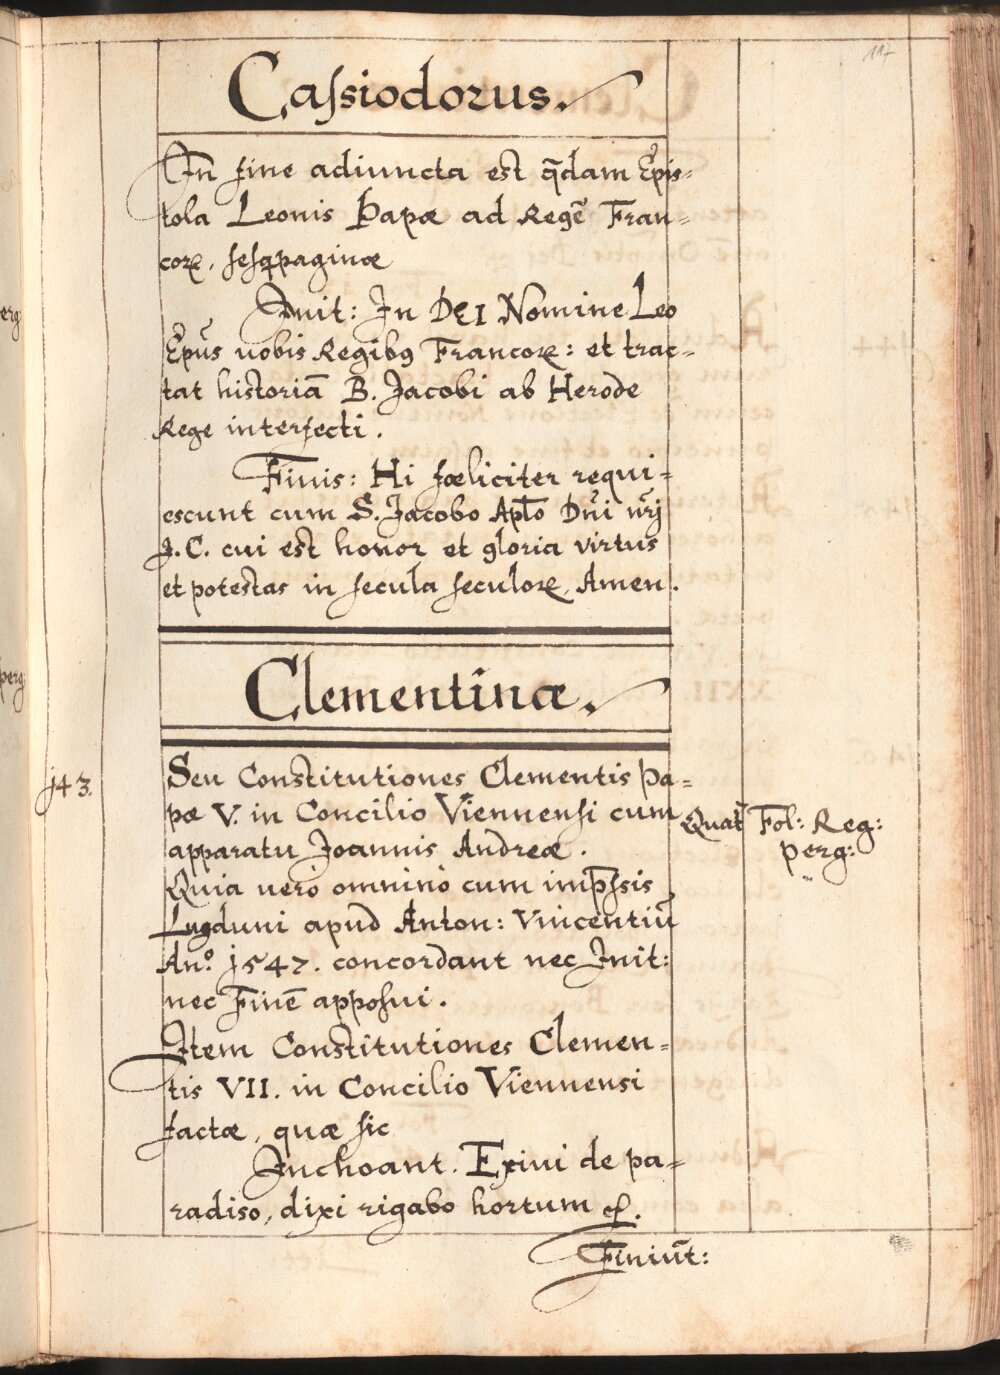 117
Caſsiodorus.
In fine adiuncta est q̃dam Epis-
tola Leonis Papæ ad Regẽ Fran-
corꝝ, ſeſqpaginæ
Init: In DEI Nomine Leo
Epũs uobis Regibꝰ Francorꝝ: et trac-
tat historiã B. Jacobi ab Herode
Rege interfecti.
Finis: Hi fœliciter requi-
escunt cum S. Jacobo Aptõ Dñi nr̃j
J. C. cui est honor et gloria virtus
et potestas in ſecula ſeculorꝝ, Amen.
Clementinæ.
143.
Seu Constitutiones Clementis Pa-
pæ V. in Concilio Viennenſi cum
apparatu Joannis Andreæ.
Quat̃
Fol: Reg:
perg:
Quia uero omnino cum imp̃ſsis
Lugduni apud Anton: Vincentiũ
An.º 1547. concordant nec Init:
nec Finẽ appoſui.
Item Constitutiones Clemen-
tis VII. in Concilio Viennensi
factæ, quæ ſic
Inchoant. Exiui de pa-
radiso, dixi rigabo hortum ꝛc.
Finiũt:
erg:
perg: